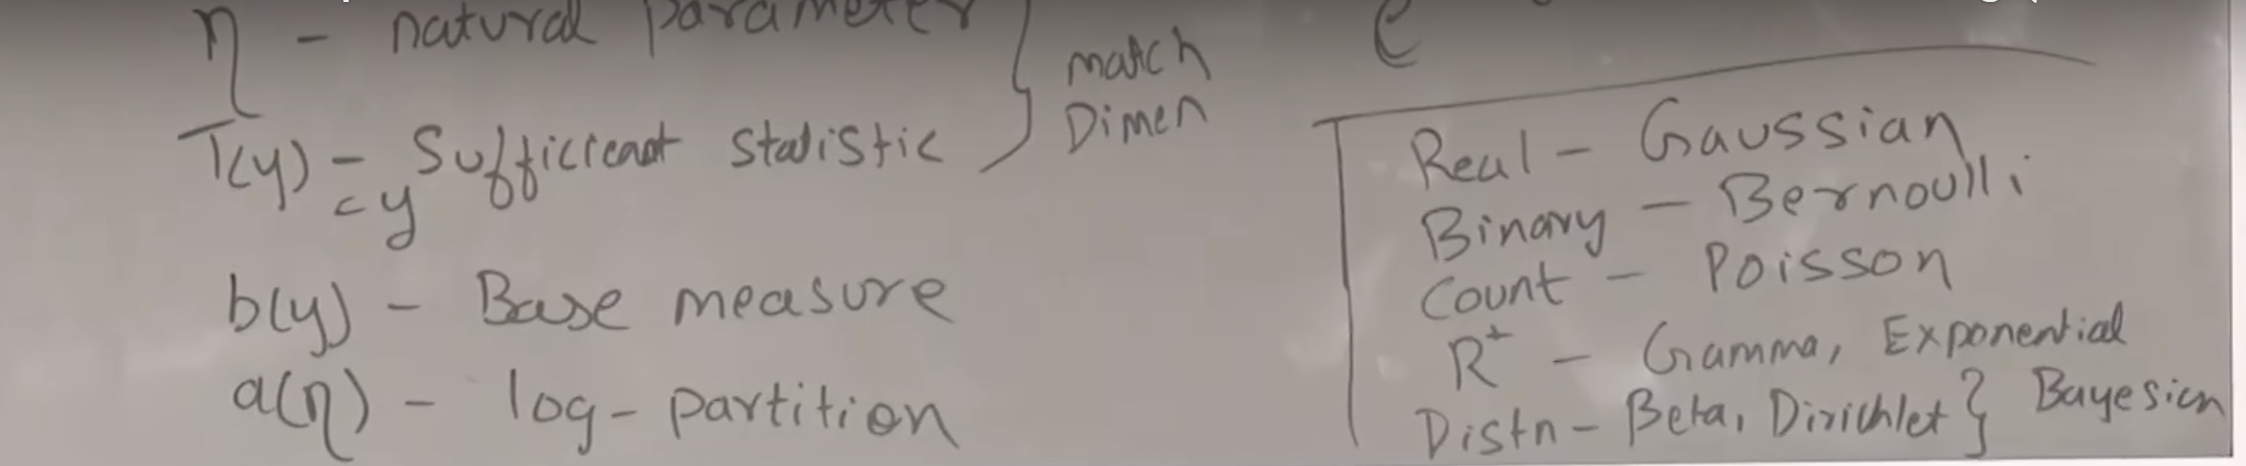 η - natural parameter
T(y) - Sufficient statistic
= y
match
Dimen
b(y) - Base measure
a(η) - log-partition
e
Real - Gaussian
Binary - Bernoulli
Count - Poisson
R⁺ - Gamma, Exponential
Distn - Beta, Dirichlet } Bayesian